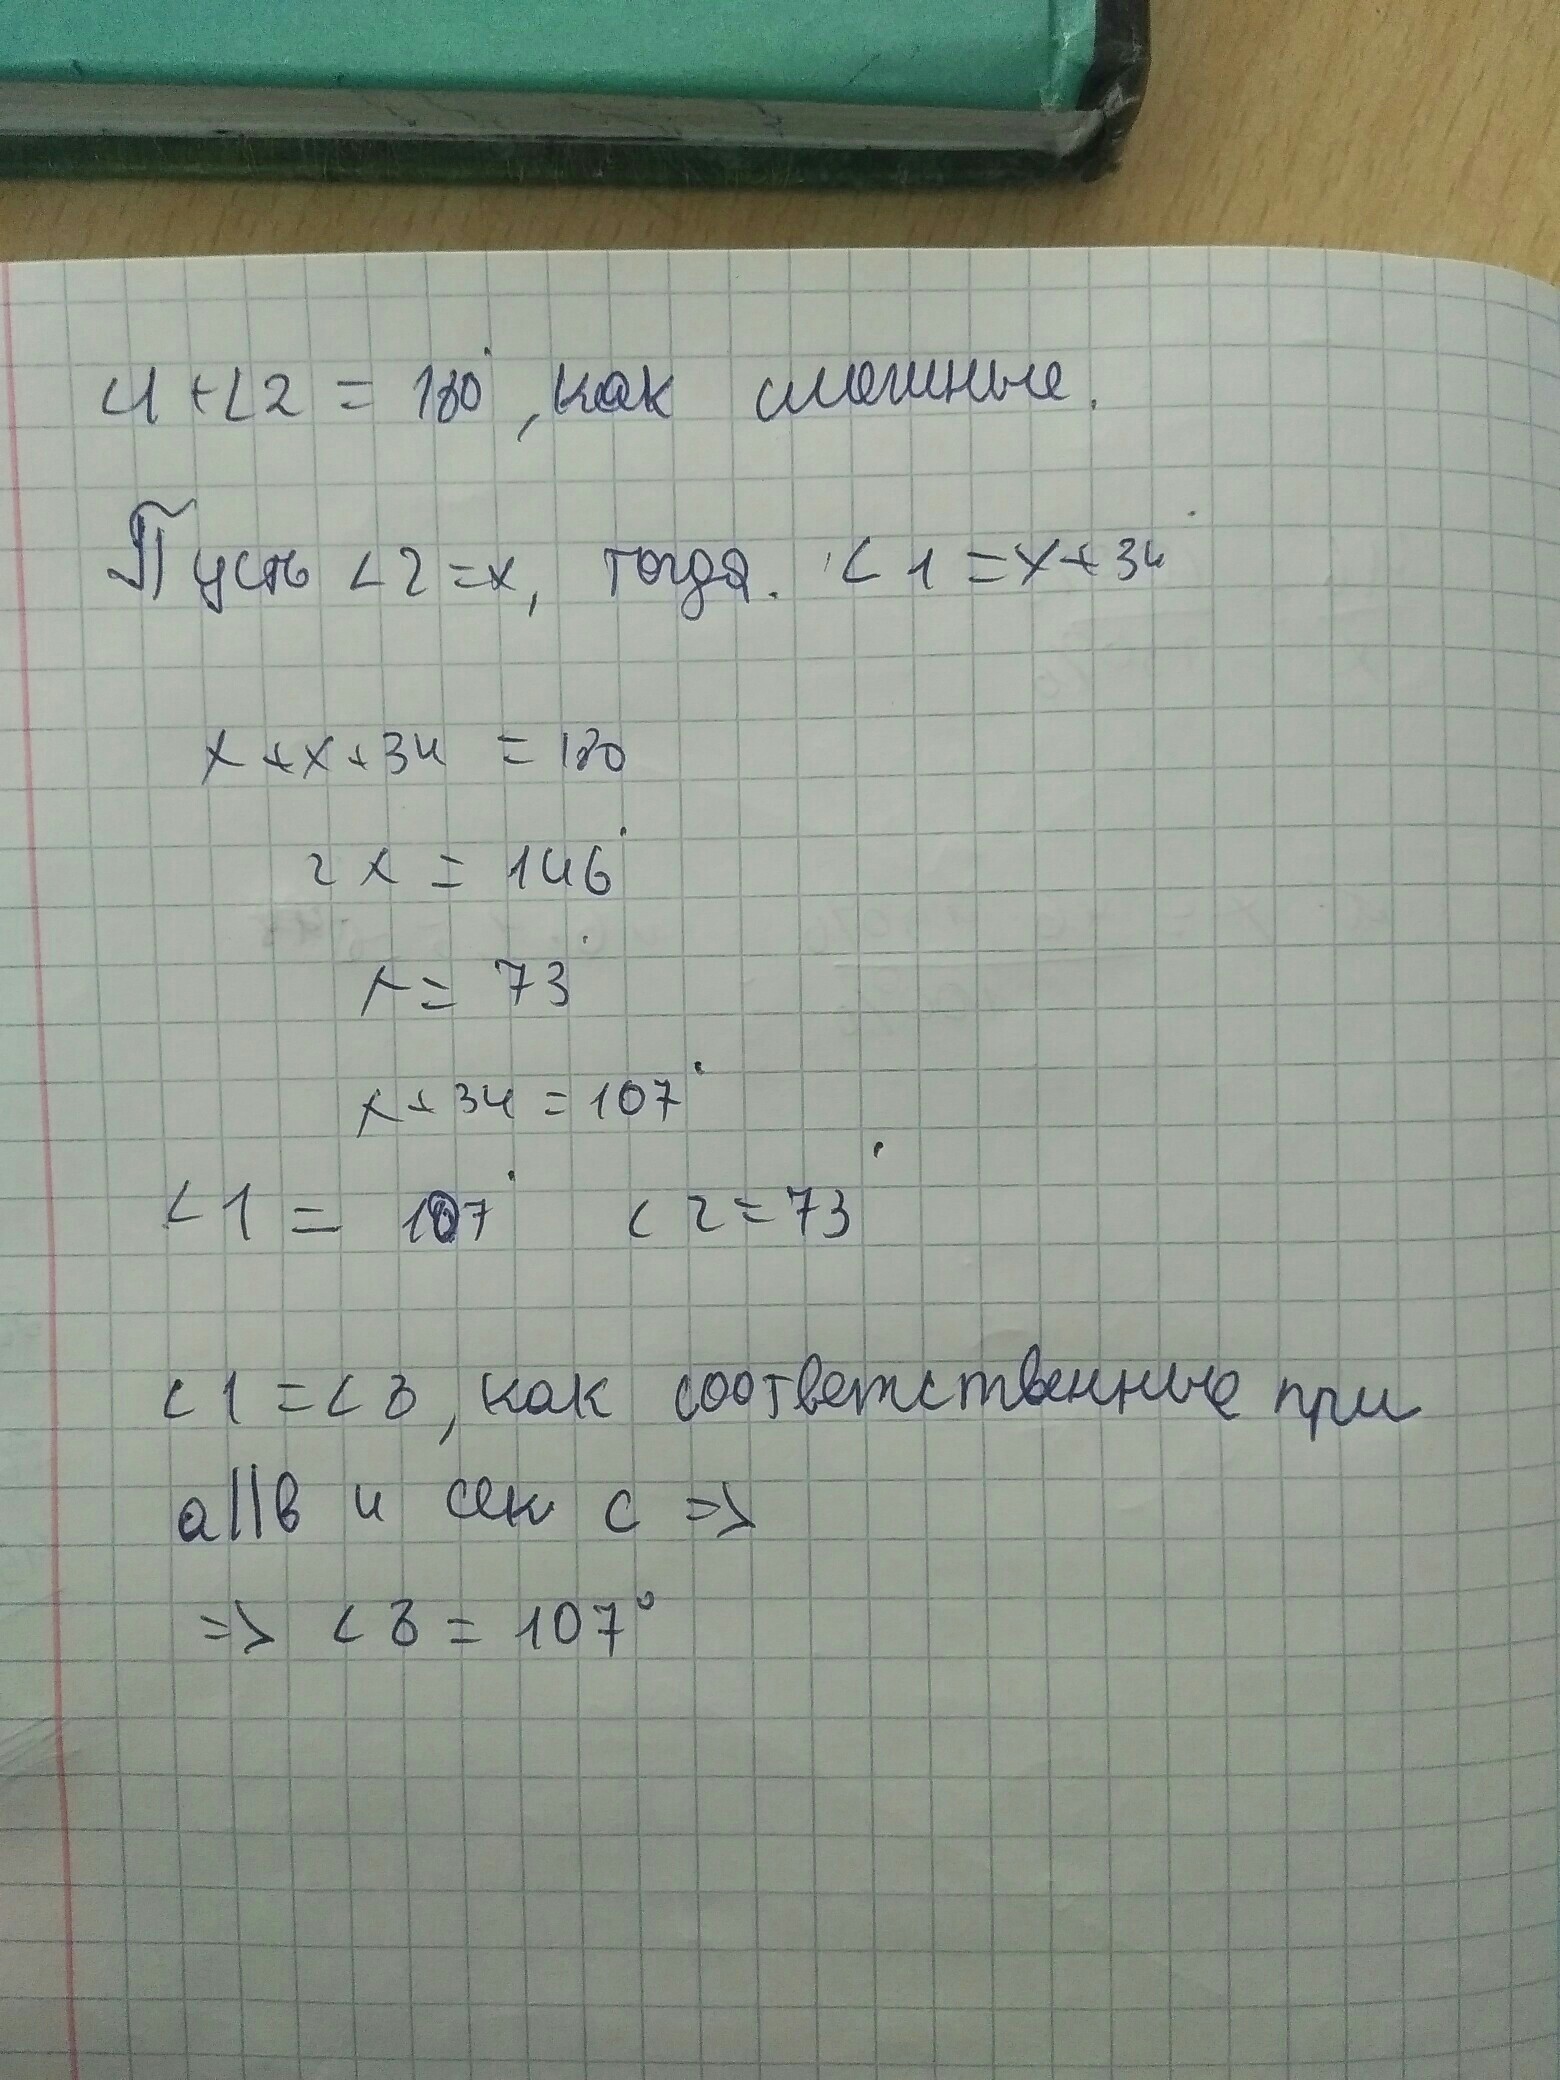 ∠1+∠2 = 180°, как смежные.
Пусть ∠2=x, тогда. ∠1=x+34°
x+x+34 = 180
2x = 146°
x= 73°
x+34=107°
∠1 = 107° ∠2=73°
∠1=∠3, как соответственные при
a||в и сек с =>
=> ∠3=107°